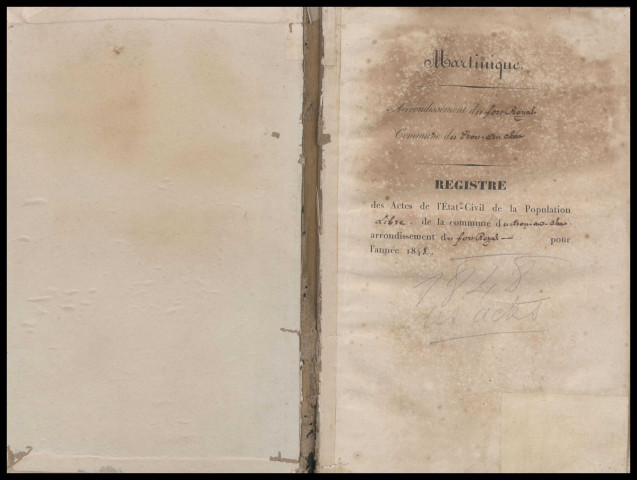 Martinique.
Arrondissement du fort Royal
Commune du Trou au chat
REGISTRE
des Actes de l'État-Civil de la Population
Libre de la commune du trou au chat
arrondissement du fort Royal pour
l'année 184
1848
actes